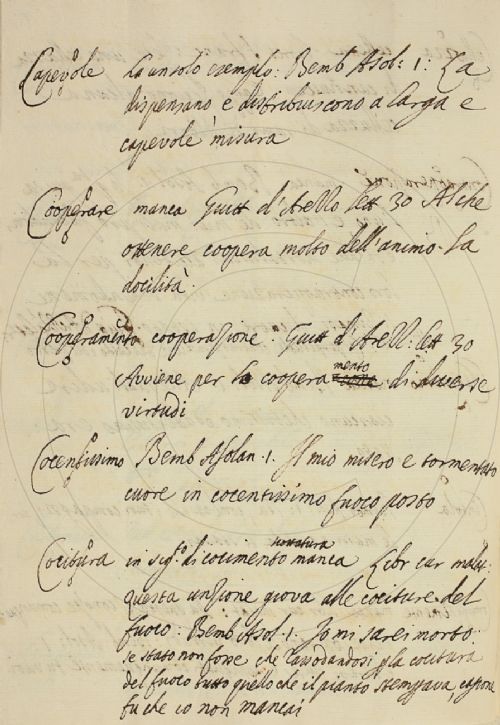 Capevole ha un solo esempio: Bemb Asol: 1: La
dispensano e distribuiscono a larga e
capevole misura
Cooperare manca Guitt d'Arezzo lett 30 Al che
ottenere coopera molto dell'animo la
docilità
Cooperamento cooperazione. Guitt d'Arezz: lett 30
Avviene per lo coopera mento di diverse
virtudi
Cocentissimo Bemb Asolan. 1. Il mio misero e tormentato
cuore in cocentissimo fuoco posto
Cocitura in sig.o di cocimento scottatura manca Libr cur malat:
questa unzione giova alle cociture del
fuoco: Bemb Asol. 1. Io mi sarei morto
se stato non fosse che rassodandosi p la cocitura
del fuoco tutto quello che il pianto stemprava, cagione
fu che io non mancai